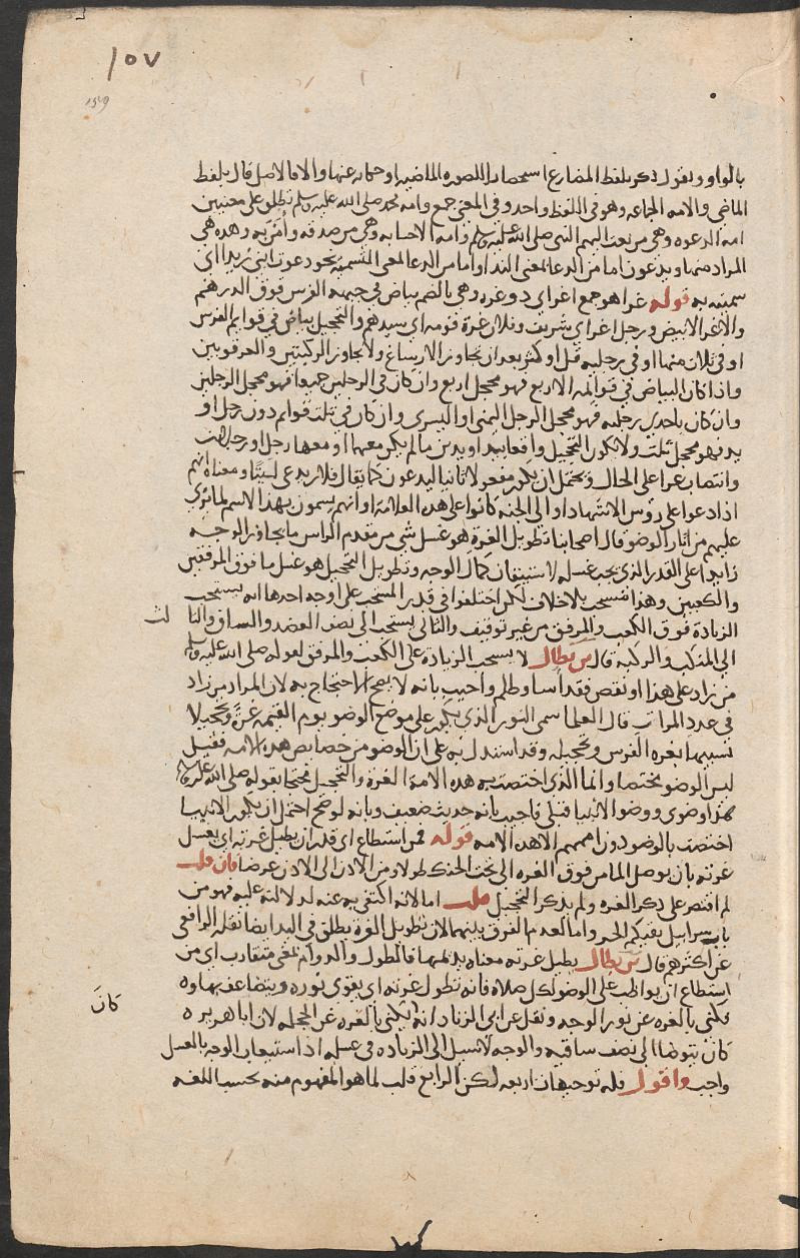 ١٥٧
١٥٩
بالواو ويقول ذكر بلفظ المضارع استحضارا للصورة الماضية او حكاية عنها والا فالاصل قال بلفظ
الماضي والامه الجماعه وهو في اللفظ واحد وفي المعنى جمع وامه محمد صلى الله عليه وسلم تطلق على معنيين
امه الدعوه وهي من بعث اليهم النبي صلى الله عليه وسلم وامه الاجابه وهي من صدقه وآمن به وهذه هي
المراد منها ويدعون اما من الدعا بمعنى الندا واما من الدعا بمعنى التسميه نحو دعوت ابني زيدا اي
سميته به قوله غرا هو جمع اغر اي ذو غره وهي بالضم بياض في جبهه الفرس فوق الدرهم
والاغر الابيض ورجل اغر اي شريف وفلان غرة قومه اي سيدهم والتحجيل بياض في قوايم الفرس
او في ثلاث منها او في رجليه قل او كثر بعد ان يجاوز الارساغ ولا يجاوز الركبتين والعرقوبين
واذا كان البياض في قوايمه الاربع فهو محجل اربع وان كان في الرجلين جميعا فهو محجل الرجلين
وان كان باحدى رجليه فهو محجل الرجل اليمنى او اليسرى وان كان في ثلث قوايم دون رجل او
يد فهو محجل ثلث ولا يكون التحجيل واقعا بيد او يدين ما لم يكن معها او معهما رجل او رجلان
وانتصاب غرا على الحال ويحتمل ان يكون مفعولا ثانيا ليدعون كما يقال فلان يدعى ليثا ومعناه انهم
اذا دعوا على روس الاشهاد او الى الجنه كانوا على هذه العلامة او انهم يسمون بهذا الاسم لما يرى
عليهم من اثار الوضو قال اصحابنا تطويل الغرة هو غسل شي من مقدم الراس ما يجاوز الوجه
زايدا على القدر الذي يجب غسله لاستيقان كمال الوجه وتطويل التحجيل هو غسل ما فوق المرفقين
والكعبين وهذا مستحب بلا خلاف لكن اختلفوا في قدر المستحب على اوجه احدها انه يستحب
الزيادة فوق الكعب والمرفق من غير توقيف والثاني يستحب الى نصف العضد والساق والثا
لث
الى المنكب والركبه قال بن بطال لا يستحب الزيادة على الكعب والمرفق لقوله صلى الله عليه وسلم
من زاد على هذا او نقص فقد اسا وظلم واجيب بانه لا يصح الاحتجاج به لان المراد من زاد
في عدد المرات قال العلما سمى النور الذي يكون على موضع الوضو يوم القيمه غرةً وتحجيلا
تشبيها بغره الفرس وتحجيله وقد استدل به على ان الوضو من خصايص هذه الامه فقيل
ليس الوضو مختصا وانما الذي اختصت به هذه الامة الغرة والتحجيل محتجا بقوله صلى الله عليه وسلم
هذا وضوى ووضو الانبيا قبلي فاجيب بانه حديث ضعيف وبانه لو صح احتمل ان يكون الانبيا
اختصت بالوضو دون اممهم الا هذه الامه قوله فمن استطاع اي قدر ان يطيل غرته اي يغسل
غرته بان يوصل الما من فوق الغره الى تحت الحنك طولا ومن الاذن الى الاذن عرضا فان قلت
لم اقتصر على ذكر الغره ولم يذكر التحجيل قلت اما لانه اكتفى به عنه لدلالته عليه فهو من
باب سرابيل تقيكم الحر واما لعدم الفرق بينهما لان تطويل الغرة يطلق في اليد ايضا نقله الرافعي
عن اكثرهم قال بن بطال يطيل غرته معناه يديمها فالطول والدوام بمعنى متقارب اي من
استطاع ان يواظب على الوضو لكل صلاة فانه تطول غرته اي يقوى نوره ويتضاعف بهاوه
فكنى بالغره عن نور الوجه ونقل عن ابي الزناد انه يكنى بالغره عن الحجله لان ابا هريره
كان
كان يتوضا الى نصف ساقيه والوجه لا سبيل الى الزياده في غسله اذ استيعاب الوجه بالغسل
واجب واقول فله توجيهات اربعه لكن الرابع قلب لما هو المفهوم منه بحسب اللغه